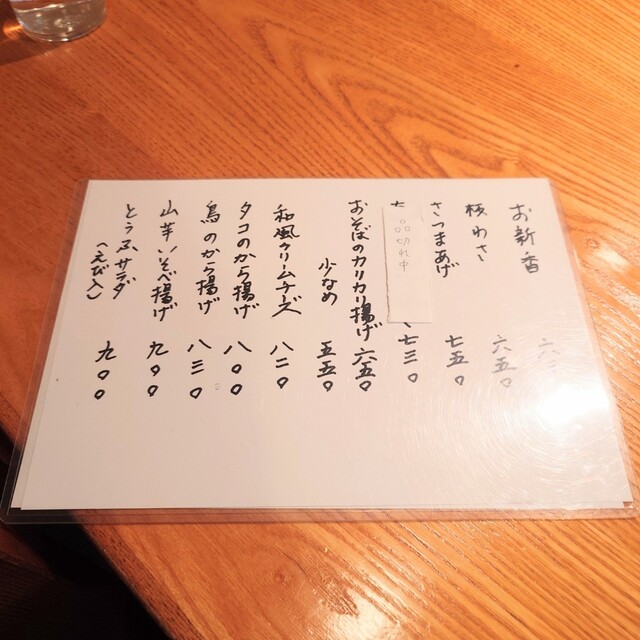 お新香 六二
板わさ 六五〇
さつまあげ 七五〇
七三〇
品切れ中
おそばのカリカリ揚げ 六五〇
少なめ 五五〇
和風クリームチーズ 八二〇
タコのから揚げ 八〇〇
鳥のから揚げ 八三〇
山芋いそべ揚げ 九〇〇
とうふサラダ
(えび入) 九〇〇